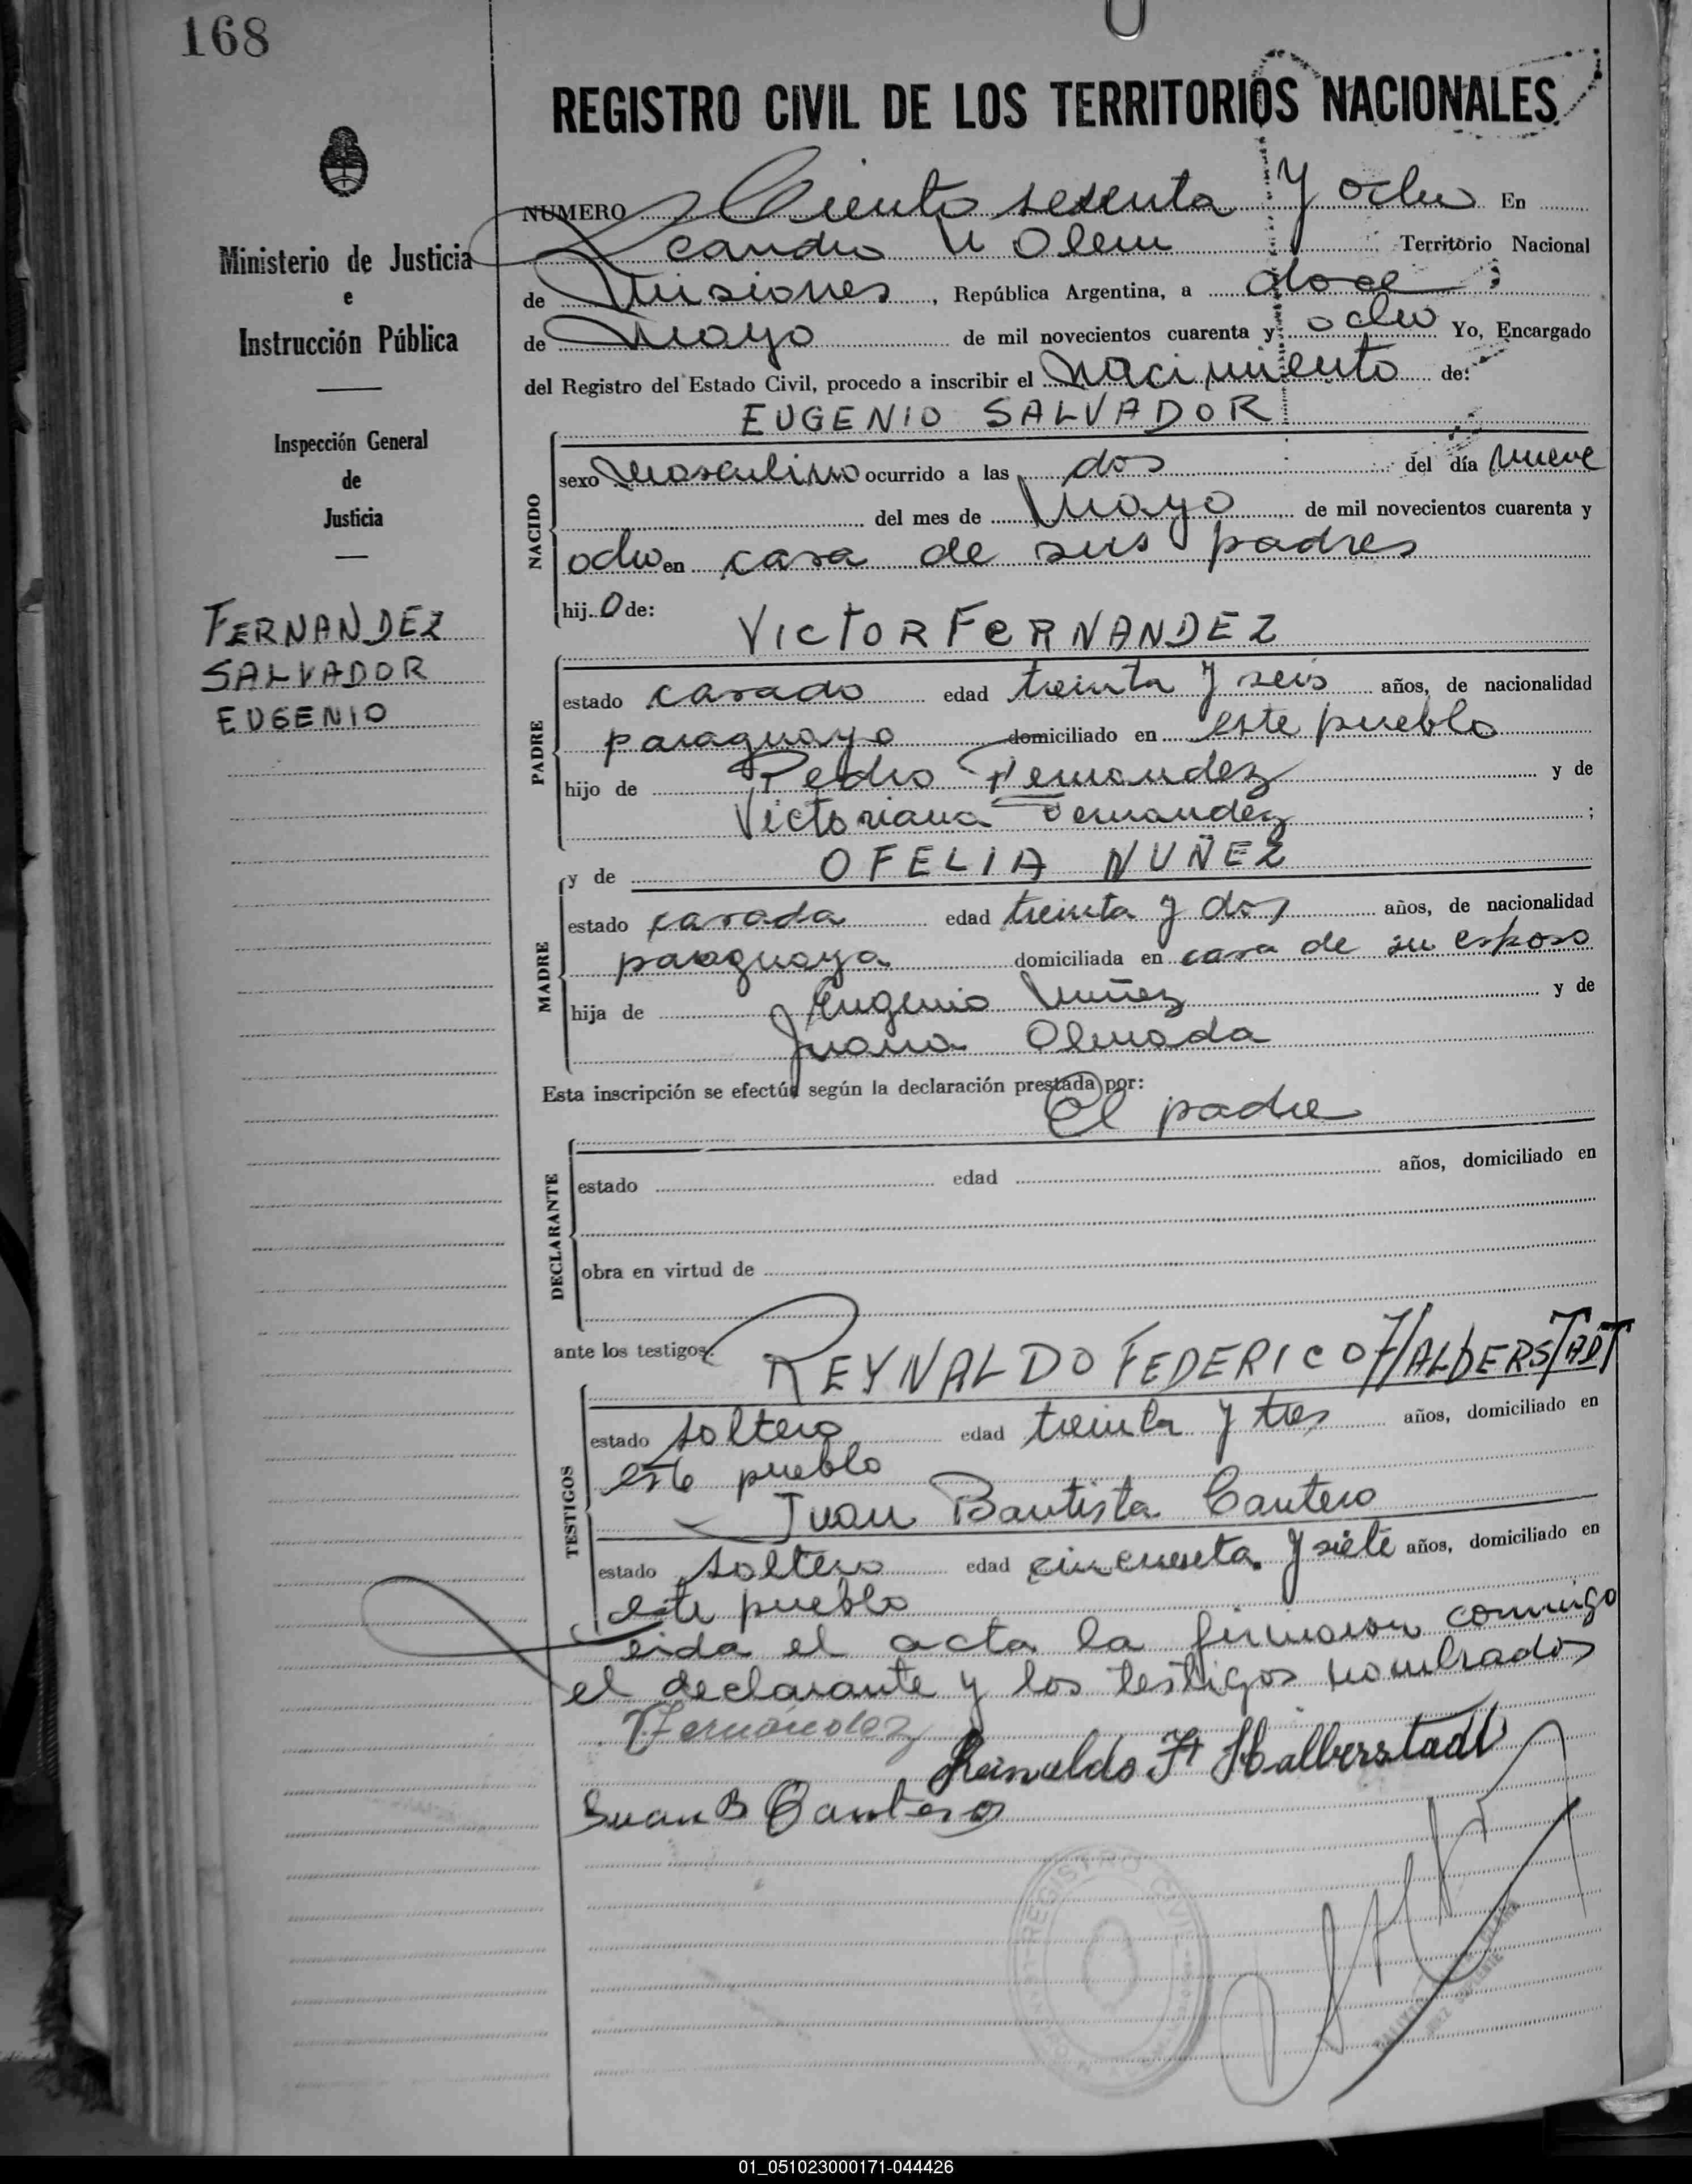 168
REGISTRO CIVIL DE LOS TERRITORIOS NACIONALES
NUMERO Ciento sesenta y ocho En
Leandro N Alem Territorio Nacional
de Misiones, República Argentina, a doce
de Mayo de mil novecientos cuarenta y ocho Yo, Encargado
del Registro del Estado Civil, procedo a inscribir el Nacimiento de:
EUGENIO SALVADOR
NACIDO
sexo Masculino ocurrido a las dos del día nueve
del mes de Mayo de mil novecientos cuarenta y
ocho en casa de sus padres
hij o de:
VICTOR FERNANDEZ
PADRE
estado casado edad treinta y seis años, de nacionalidad
paraguayo domiciliado en este pueblo
hijo de Pedro Fernandez y de
Victoriana Fernandez ;
y de OFELIA NUÑEZ
MADRE
estado casada edad treinta y dos años, de nacionalidad
paraguaya domiciliada en casa de su esposo
hija de Eugenio Nuñez y de
Juana Olmada
Esta inscripción se efectúa según la declaración prestada por:
el padre
DECLARANTE
estado edad años, domiciliado en
obra en virtud de
ante los testigos:
REYNALDO FEDERICO HALBERSTADT
TESTIGOS
estado soltero edad treinta y tres años, domiciliado en
este pueblo
Juan Bautista Cantero
estado soltero edad cincuenta y siete años, domiciliado en
este pueblo
Leida el acta la firmaron conmigo
el declarante y los testigos nombrados
VFernández
Reinaldo F Halberstadt
Juan B Cantero
REGISTRO CIVIL
Ministerio de Justicia
e
Instrucción Pública
Inspección General
de
Justicia
FERNANDEZ
SALVADOR
EUGENIO
01_051023000171-044426